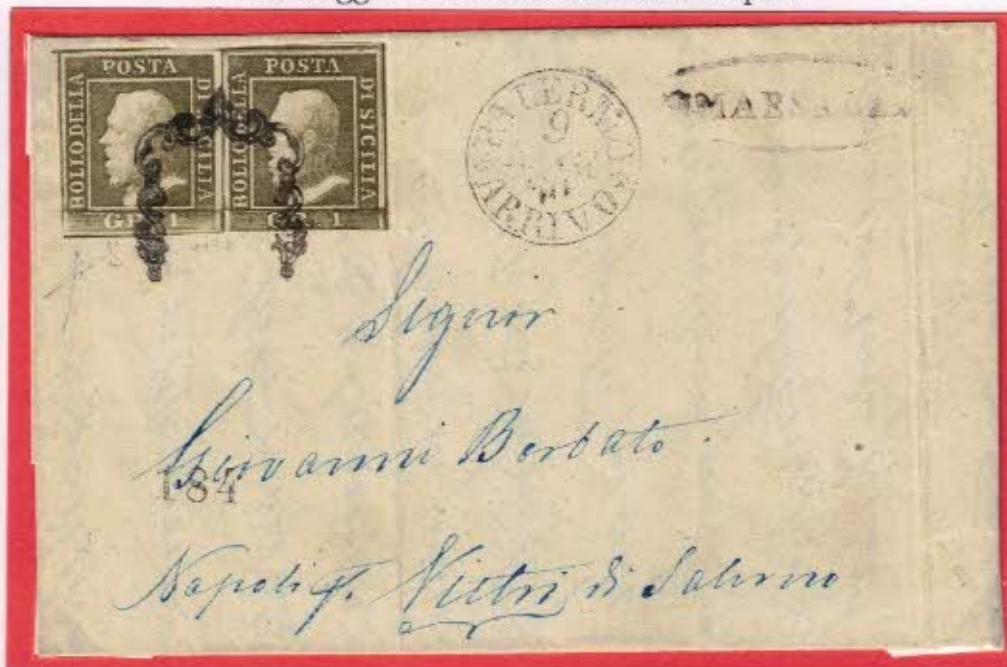 POSTA
BOLLO DELLA
DI SICILIA
GR. 1
POSTA
BOLLO DELLA
DI SICILIA
GR. 1
PALERMO
9
ARRIVO
Signor
Giovanni Borbato.
184
Napoli p. Vietri di Salerno